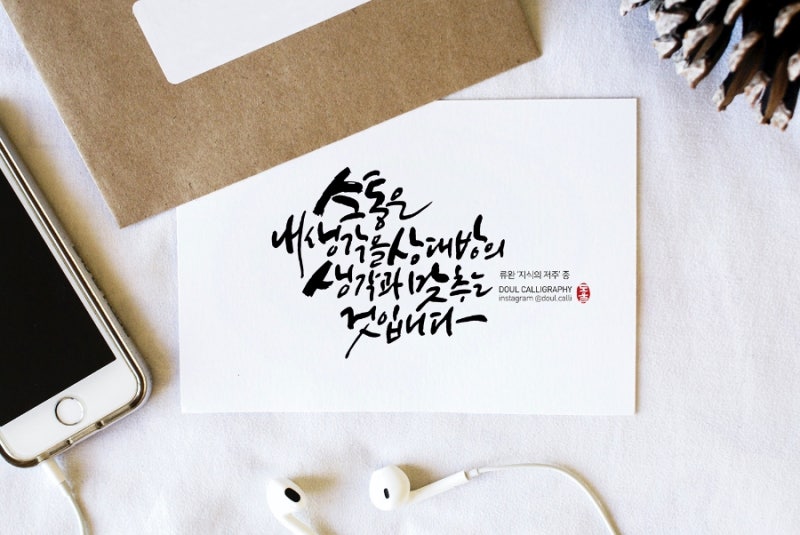 소통은
내 생각을 상대방의
생각과 맞추는
것입니다
류완 '지식의 저주' 중
DOUL CALLIGRAPHY
instagram @doul.calli